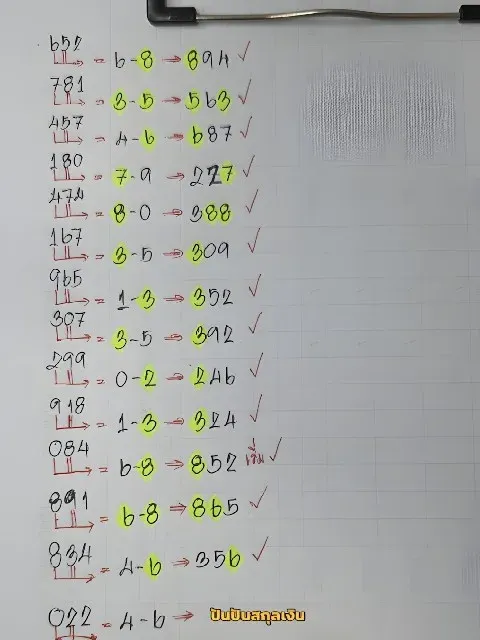 652 = 6-8 → 894 ✓
781 = 3-5 → 563 ✓
457 = 4-6 → 687 ✓
180 = 7-9 → 227 ✓
474 = 8-0 → 388 ✓
167 = 3-5 → 309 ✓
965 = 1-3 → 352 ✓
307 = 3-5 → 392 ✓
299 = 0-2 → 246 ✓
918 = 1-3 → 324 ✓
084 = 6-8 → 852 เริ่ม ✓
891 = 6-8 → 865 ✓
834 = 4-6 → 356 ✓
022 = 4-6 → ปันปันสกุลเงิน